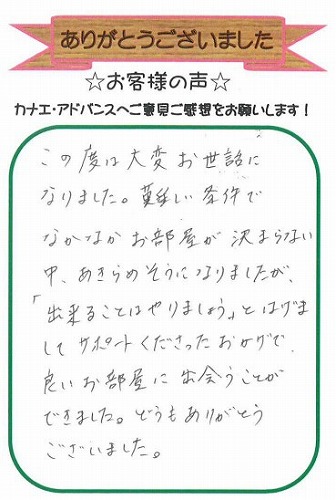 ありがとうございました
☆お客様の声☆
カナエ・アドバンスへご意見ご感想をお願いします！
この度は大変お世話に
なりました。難しい条件で
なかなかお部屋が決まらない
中、あきらめそうになりましたが、
「出来ることはやりましょう」とはげま
してサポートくださったおかげで、
良いお部屋に出会うことが
できました。どうもありがとう
ございました。